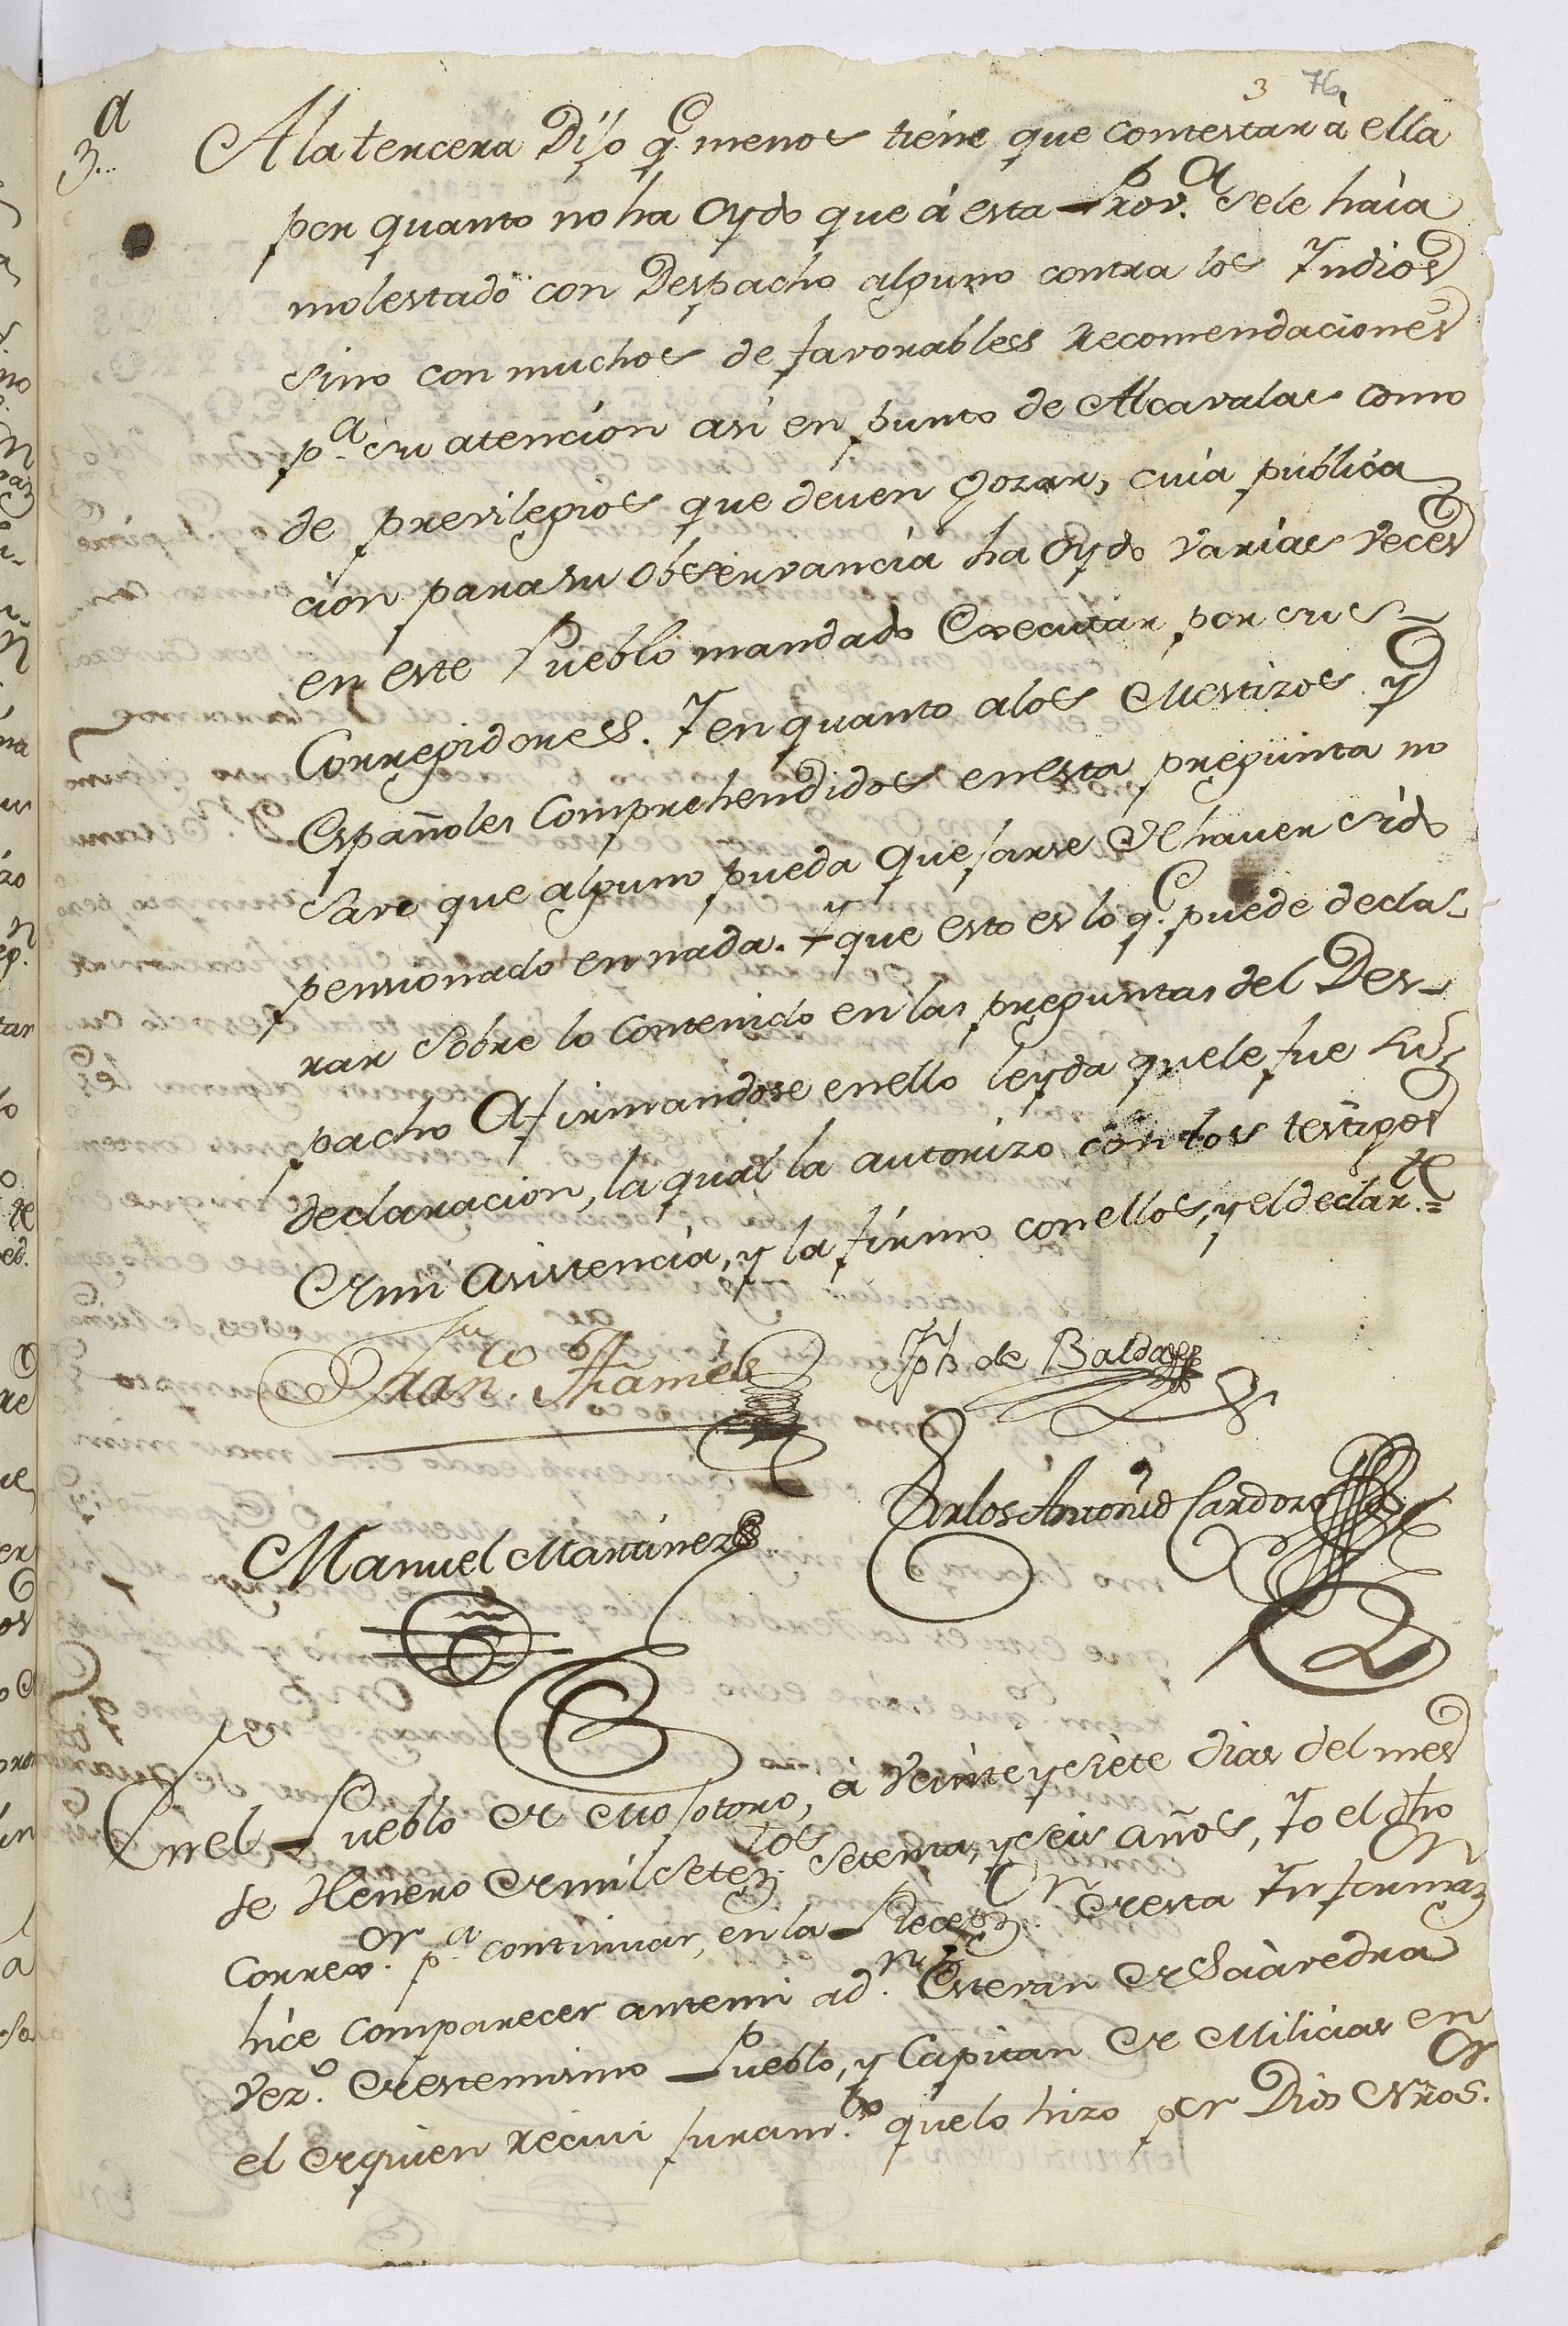 3 76
3.ª A la tercera Dijo q.e menos tiene que contestar à ella
por quanto no ha Oydo que à esta Prov.a se le haia
molestado con Despacho alguno contra los Indios
sino con muchos de favorables recomendaciones
p.a su atencion asi en punto de Alcavalas como
de previlegios que deven gozar, cuia publica
cion para su observancia ha Oydo varias veces
en este Pueblo mandado Executar por sus
Corregidores. Y en quanto a los Mestizos y
Españoles Comprehendidos en esta pregunta no
save que alguno pueda quejarse de haver sido
pensionado en nada. Y que esto es lo q.e puede decla-
rar sobre lo contenido en las preguntas del Des-
pacho Afirmandose en ello leyda que le fue su
declaracion, la qual la autorizo con los testigos
de mi asistencia, y la firmo con ellos, y el declar.te=
Jph de Baldas
Manuel Martinez
Carlos Antonio Cardozo
En el Pueblo de Mojotoro, à veinte y siete dias del mes
de Henero de mil setez.tos setenta, y seis años, Yo el dho
Correx.or p.a continuar, en la Recepz.on de esta Informaz.on
hice comparecer ante mi a d.n Estevan de Saàvedra
vez.o de este mismo Pueblo, y Capitan de Milicias en
el de quien recivi juram.to que lo hizo por Dios Nro S.or